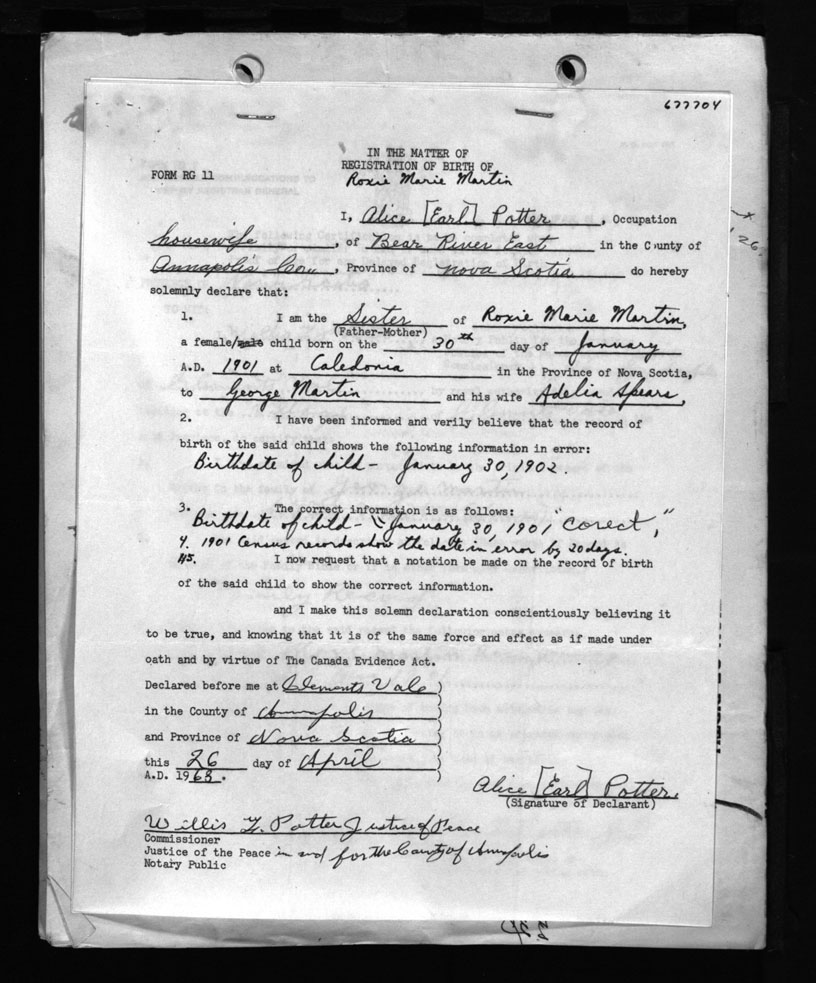 677704
IN THE MATTER OF
REGISTRATION OF BIRTH OF
FORM RG 11
Roxie Marie Martin
I, Alice [Earl] Potter, Occupation
housewife, of Bear River East in the County of
Annapolis Cou, Province of Nova Scotia do hereby
solemnly declare that:
1. I am the Sister of Roxie Marie Martin,
(Father-Mother)
a female/male child born on the 30th day of January
A.D. 1901 at Caledonia in the Province of Nova Scotia,
to George Martin and his wife Adelia Spears,
2. I have been informed and verily believe that the record of
birth of the said child shows the following information in error:
Birthdate of child - January 30, 1902.
3. The correct information is as follows:
Birthdate of child - January 30, 1901 "corect,"
4. 1901 Census records show the date in error by 20 days.
4/5. I now request that a notation be made on the record of birth
of the said child to show the correct information.
and I make this solemn declaration conscientiously believing it
to be true, and knowing that it is of the same force and effect as if made under
oath and by virtue of The Canada Evidence Act.
Declared before me at Clements Vale )
in the County of Annapolis )
and Province of Nova Scotia )
this 26 day of April )
A.D. 1968. )
Alice [Earl] Potter.
(Signature of Declarant)
Willis Potter Justice of Peace
Commissioner
Justice of the Peace in and for the County of Annapolis
Notary Public
26.